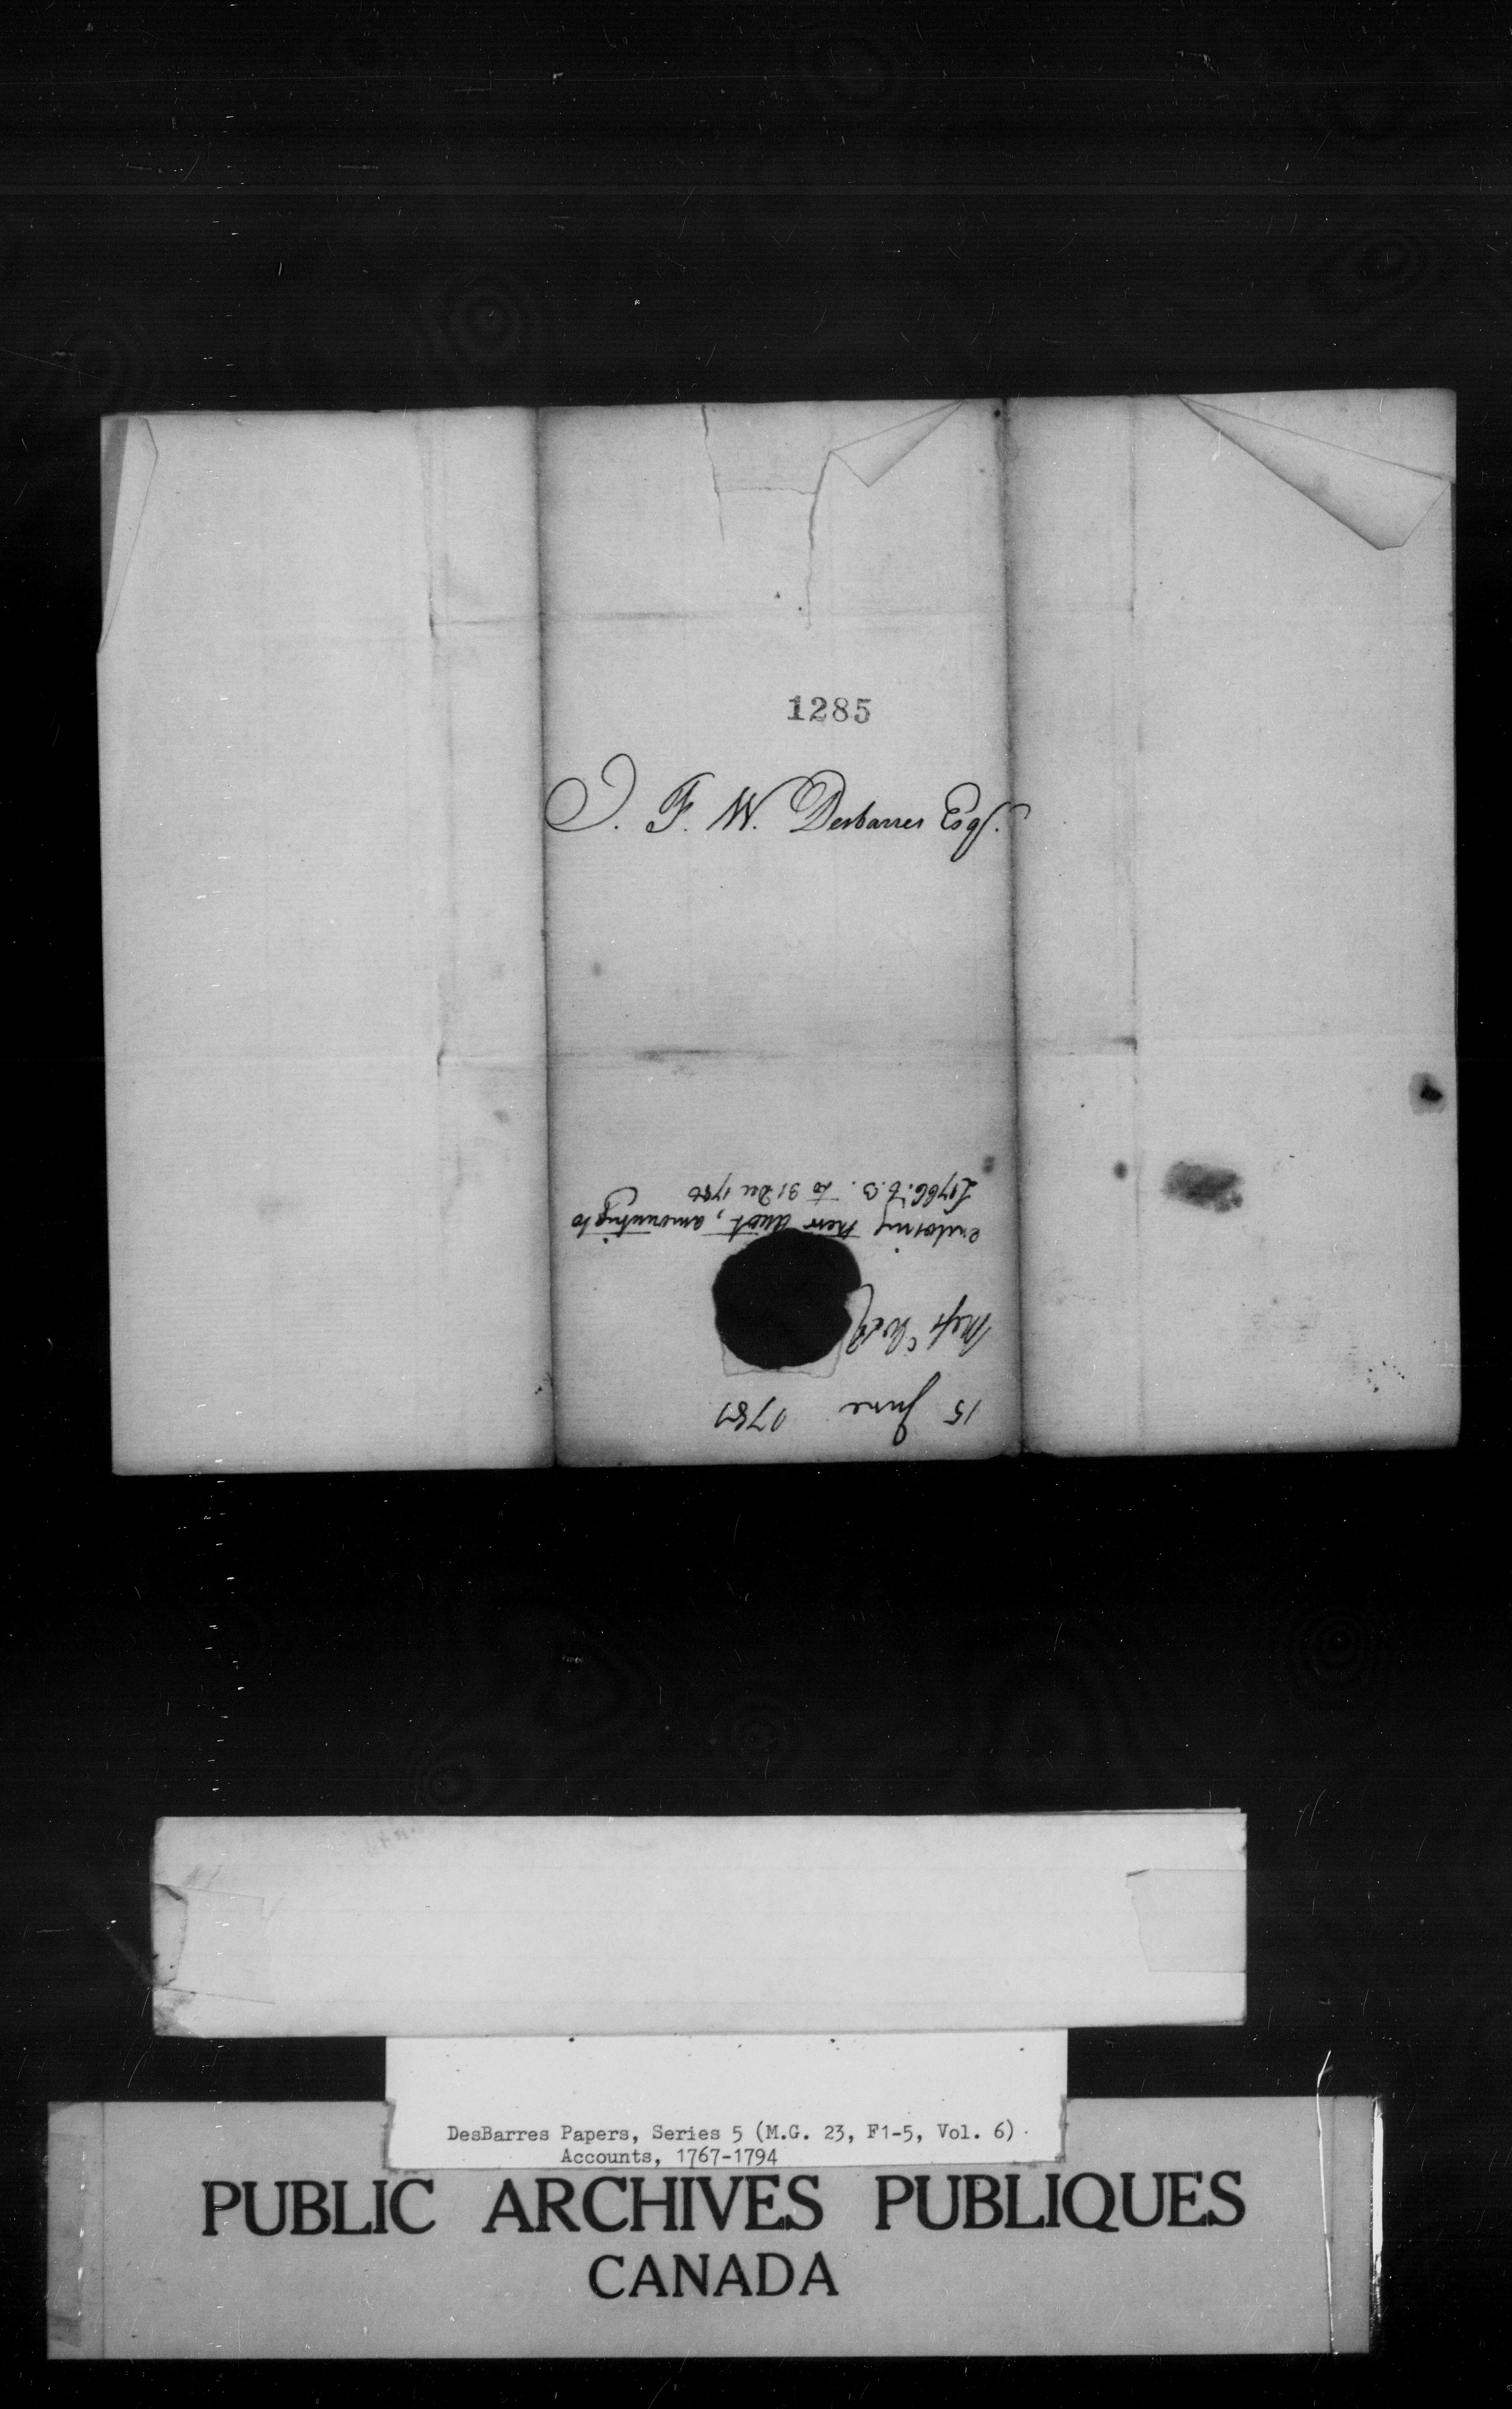 1285
J. F. W. Desbarres Esqr.
15 June 1787
Messrs
enclosing their Acct, amounting to
to 31 Dec 1786
DesBarres Papers, Series 5 (M.G. 23, F1-5, Vol. 6)
Accounts, 1767-1794
PUBLIC ARCHIVES PUBLIQUES
CANADA